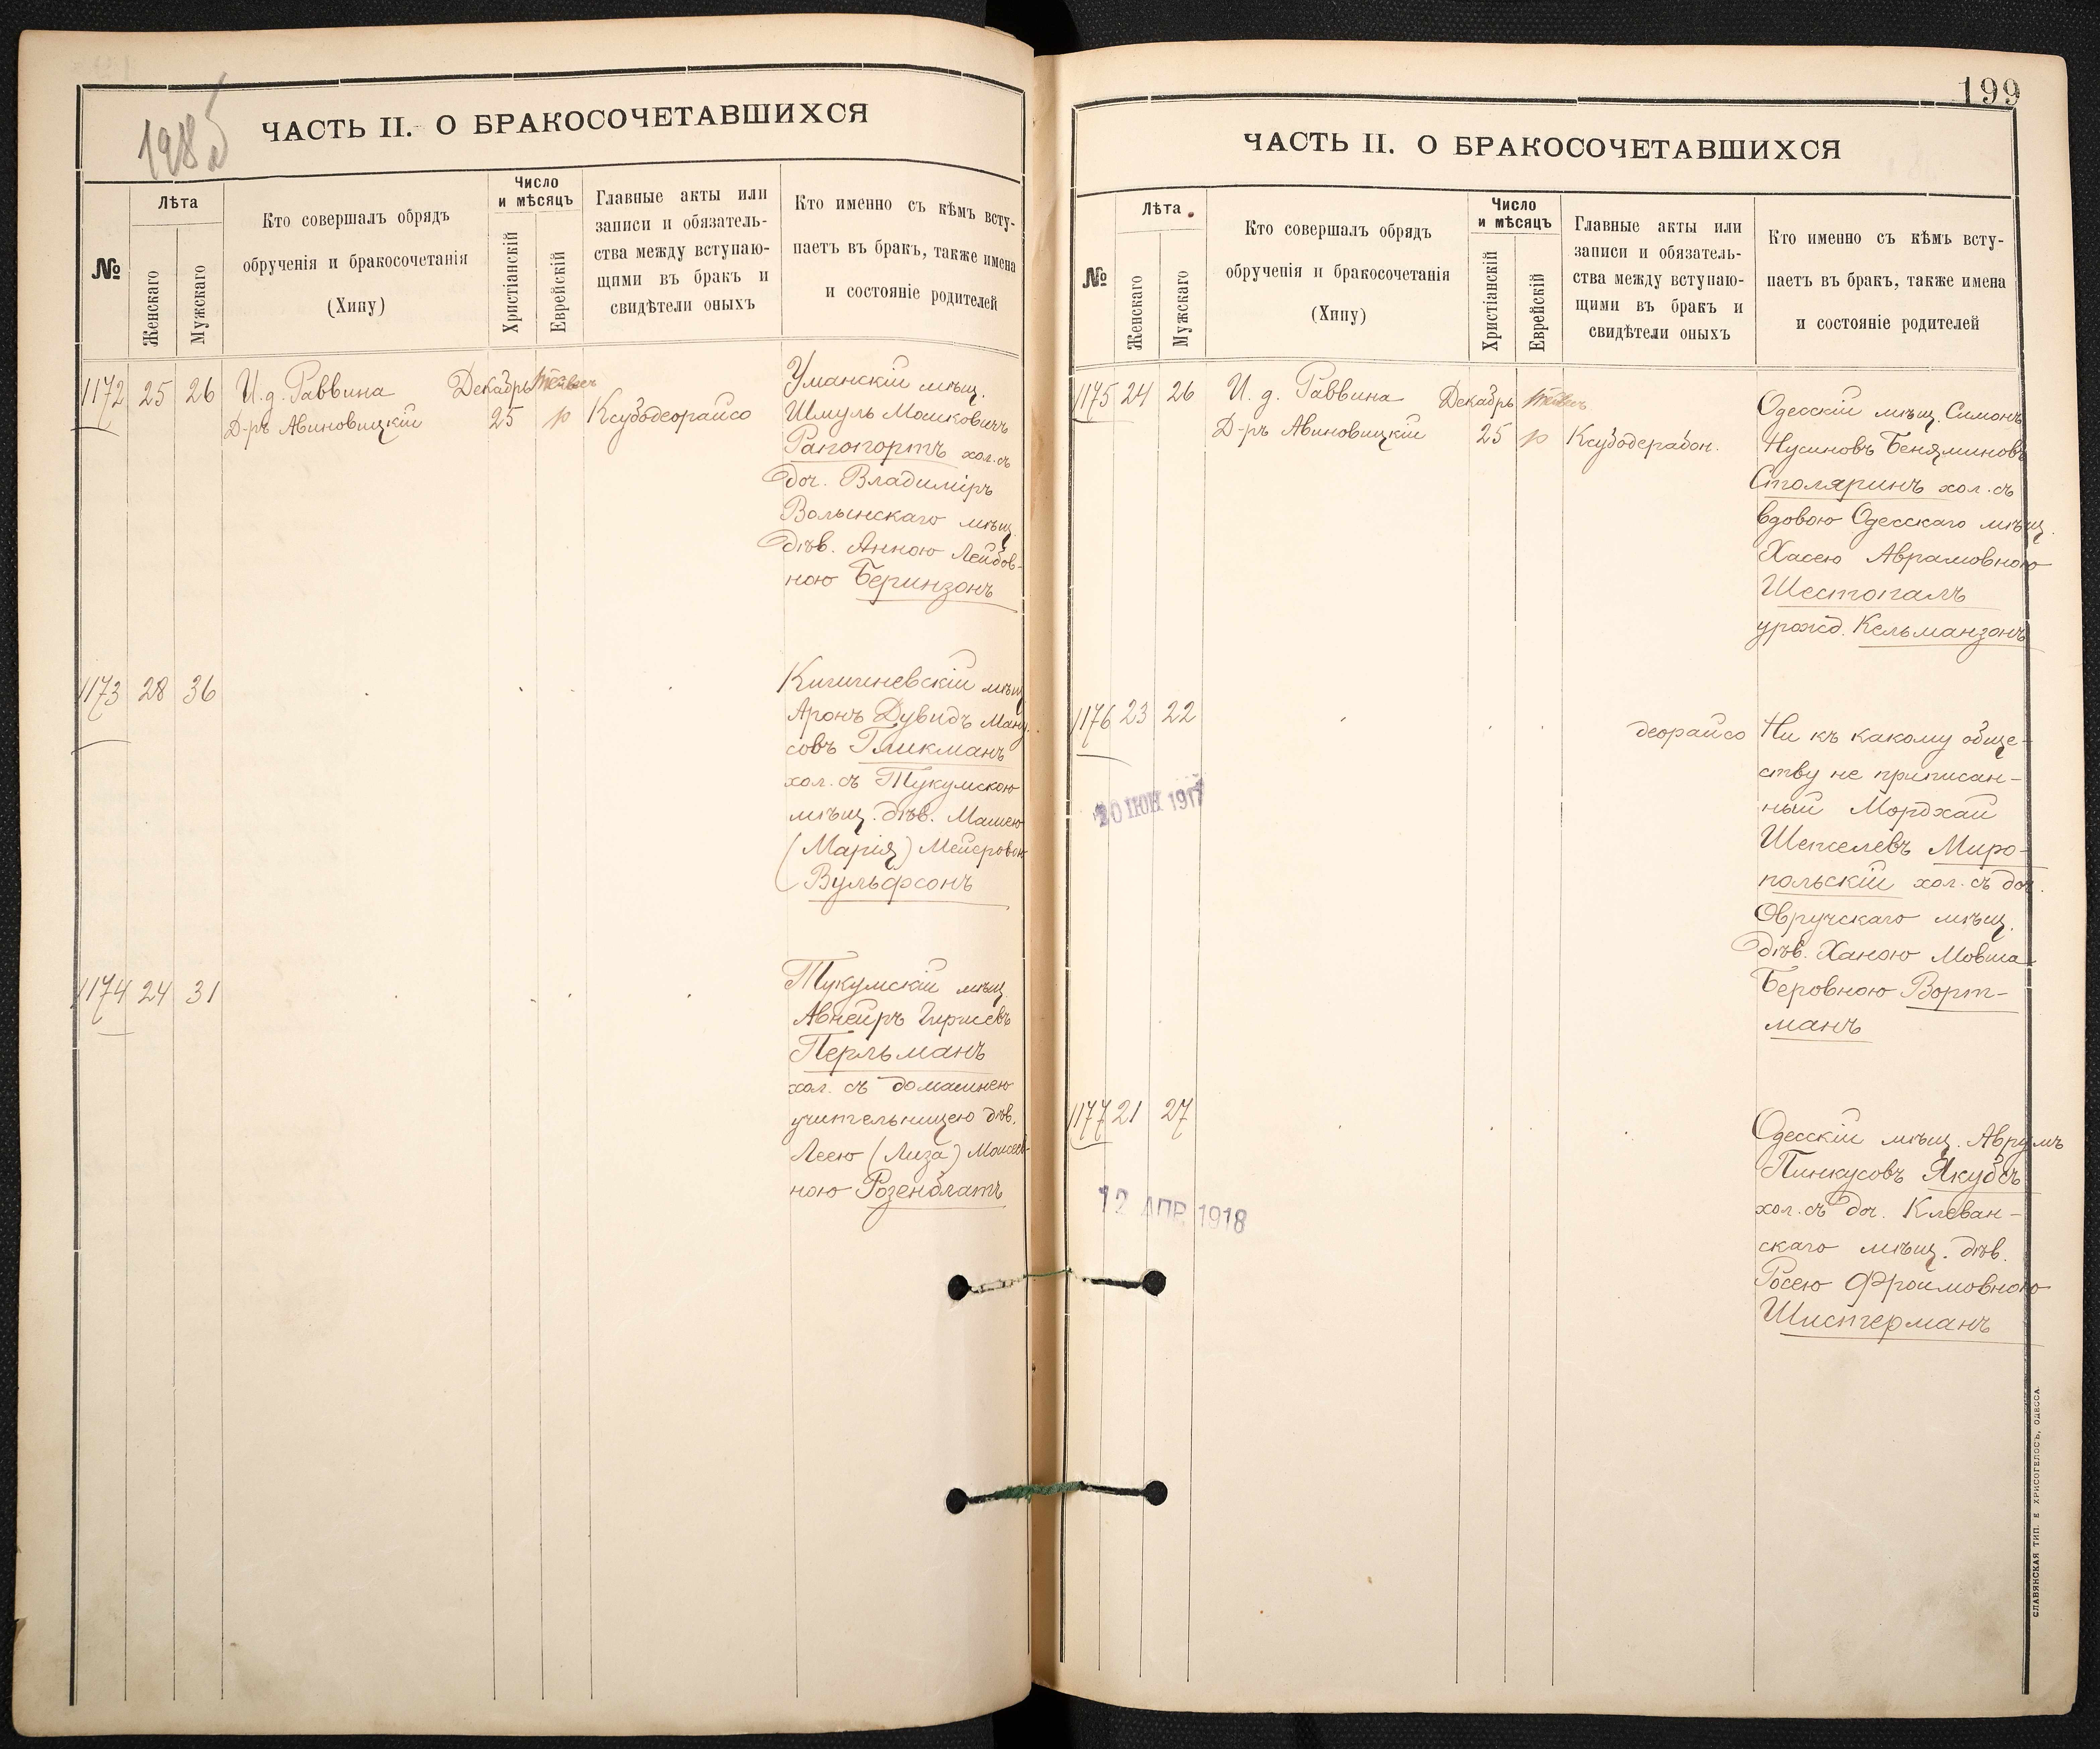 198б
ЧАСТЬ II. О БРАКОСОЧЕТАВШИХСЯ
№
Лѣта
Женскаго
Мужскаго
Кто совершалъ обрядъ
обрученія и бракосочетанія
(Хипу)
Число
и мѣсяцъ
Христіанскій
Еврейскій
Главные акты или
записи и обязатель-
ства между вступаю-
щими въ бракъ и
свидѣтели оныхъ
Кто именно съ кѣмъ всту-
паетъ въ бракъ, также имена
и состояніе родителей
1172 25 26 И. д. Раввина Декабрь
Д-ръ Авиновицкій 25 Ксубодеорайсо
Уманскій мѣщ.
Шмуль Мошковичъ
Рапопортъ хол. съ
доч. Владиміръ
Волынскаго мѣщ.
дѣв. Анною Лейбов-
ною Беринзонъ
1173 28 36
Кишиневскій мѣщ
Аронъ Дувидъ Ману-
совъ Гликманъ
хол. съ Тукумскою
мѣщ. дѣв. Машею
(Марія) Мейеровон
Вульфсонъ
1174 24 31
Тукумскій мѣщ
Авнеиръ Гиршевъ
Перльманъ
хол. съ домашнею
учительницею дѣв.
Леею (Лиза) Моисеев-
ною Розенблатъ
199
ЧАСТЬ II. О БРАКОСОЧЕТАВШИХСЯ
№
Лѣта
Женскаго
Мужскаго
Кто совершалъ обрядъ
обрученія и бракосочетанія
(Хипу)
Число
и мѣсяцъ
Христіанскій
Еврейскій
Главные акты или
записи и обязатель-
ства между вступаю-
щими въ бракъ и
свидѣтели оныхъ
Кто именно съ кѣмъ всту-
паетъ въ бракъ, также имена
и состояніе родителей
1175 24 26 И. д. Раввина Декабрь
Д-ръ Авиновицкій 25 Ксубодерабон.
Одесскій мѣщ. Симонъ
Нусиновъ Беняминовъ
Столяринъ хол. съ
вдовою Одесскаго мѣщ.
Хасею Аврамовною
Шестопалъ
урожд. Кельманзонъ
1176 23 22
деорайсо
Ни къ какому обще-
ству не приписан-
ный Мордхай
Шепселевъ Миро-
польскій хол. съ доч.
Овручскаго мѣщ.
дѣв. Ханою Мовша-
Беровною Ворт-
манъ
20 ІЮН 1917
1177 21 27
Одесскій мѣщ. Аврумъ
Пинкусовъ Якубсъ
хол. съ доч. Клеван-
скаго мѣщ. дѣв.
Росею Фроимовною
Шистерманъ
12 АПР 1918
СЛАВЯНСКАЯ ТИП. Е ХРИСОГЕЛОСЪ, ОДЕССА.